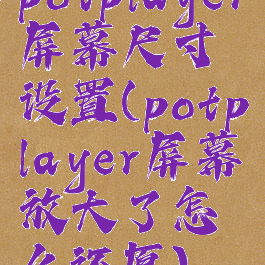 potplayer
屏幕尺寸
设置(potp
layer屏幕
放大了怎
么还原)